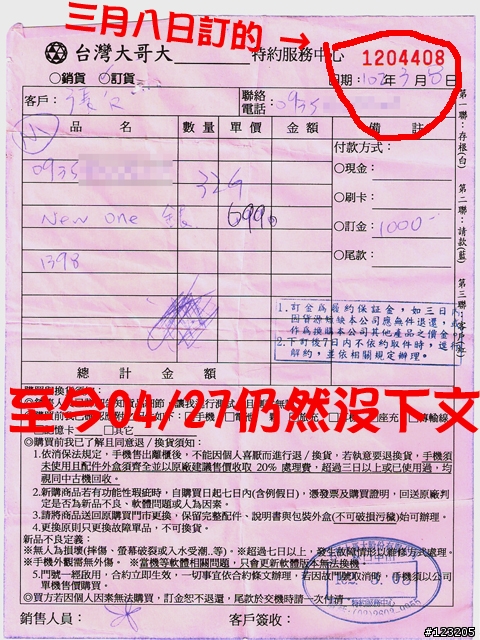 三月八日訂的→
台灣大哥大 特約服務中心 1204408
○銷貨 ○訂貨 日期:102年3月8日
客戶: 聯絡電話:0935
品名 數量 單價 金額 備註
0935 32G
New One 銀 6990
1398
付款方式:
○現金:
○刷卡:
○訂金:1000
○尾款:
第一聯:存根(白) 第二聯:請款(藍) 第三聯:客戶
1.訂金為履約保證金,如三日內
因貨源短缺本公司應無件退還,
作為換購本公司其他產品之價金
2.下訂後7日內不依約取件時,逕行
解約,並依相關規定辦理。
總計金額
至今4/27仍然沒下文
購買與換貨須知:
◎購買前我已了解且同意退/換貨須知:
1.依消保法規定,手機售出離櫃後,不能因個人喜厭而進行退/換貨,若執意要退換貨,手機須
未使用且配件外盒須齊全並以原廠建議售價收取 20% 處理費,超過三日以上或已使用過,均
視同中古機回收。
2.新購商品若有功能性瑕疵時,自購買日起七日內(含例假日),憑發票及購買證明,回送原廠判
定是否為新品不良、軟體問題或人為因素。
3.請將商品送回原購買門市更換,保留完整配件、說明書與包裝外盒(不可破損污穢)始可辦理。
4.更換原則只更換故障單品,不可換貨。
新品不良定義:
※無人為損壞(摔傷、螢幕破裂或入水受潮..等)。※超過七日以上,發生故障情形以維修方式處理。
※手機外觀需無外傷。※當機等軟體相關問題,只會更新軟體版本無法換機
5.門號一經啟用,合約立即生效,一切事宜依合約條文辦理,若因故門號取消時,手機須以公司
單機售價購買。
◎買方若因個人因素無法購買,訂金恕不退還,尾款於交機時請一次付清。
銷售人員: 客戶簽收:
#123205